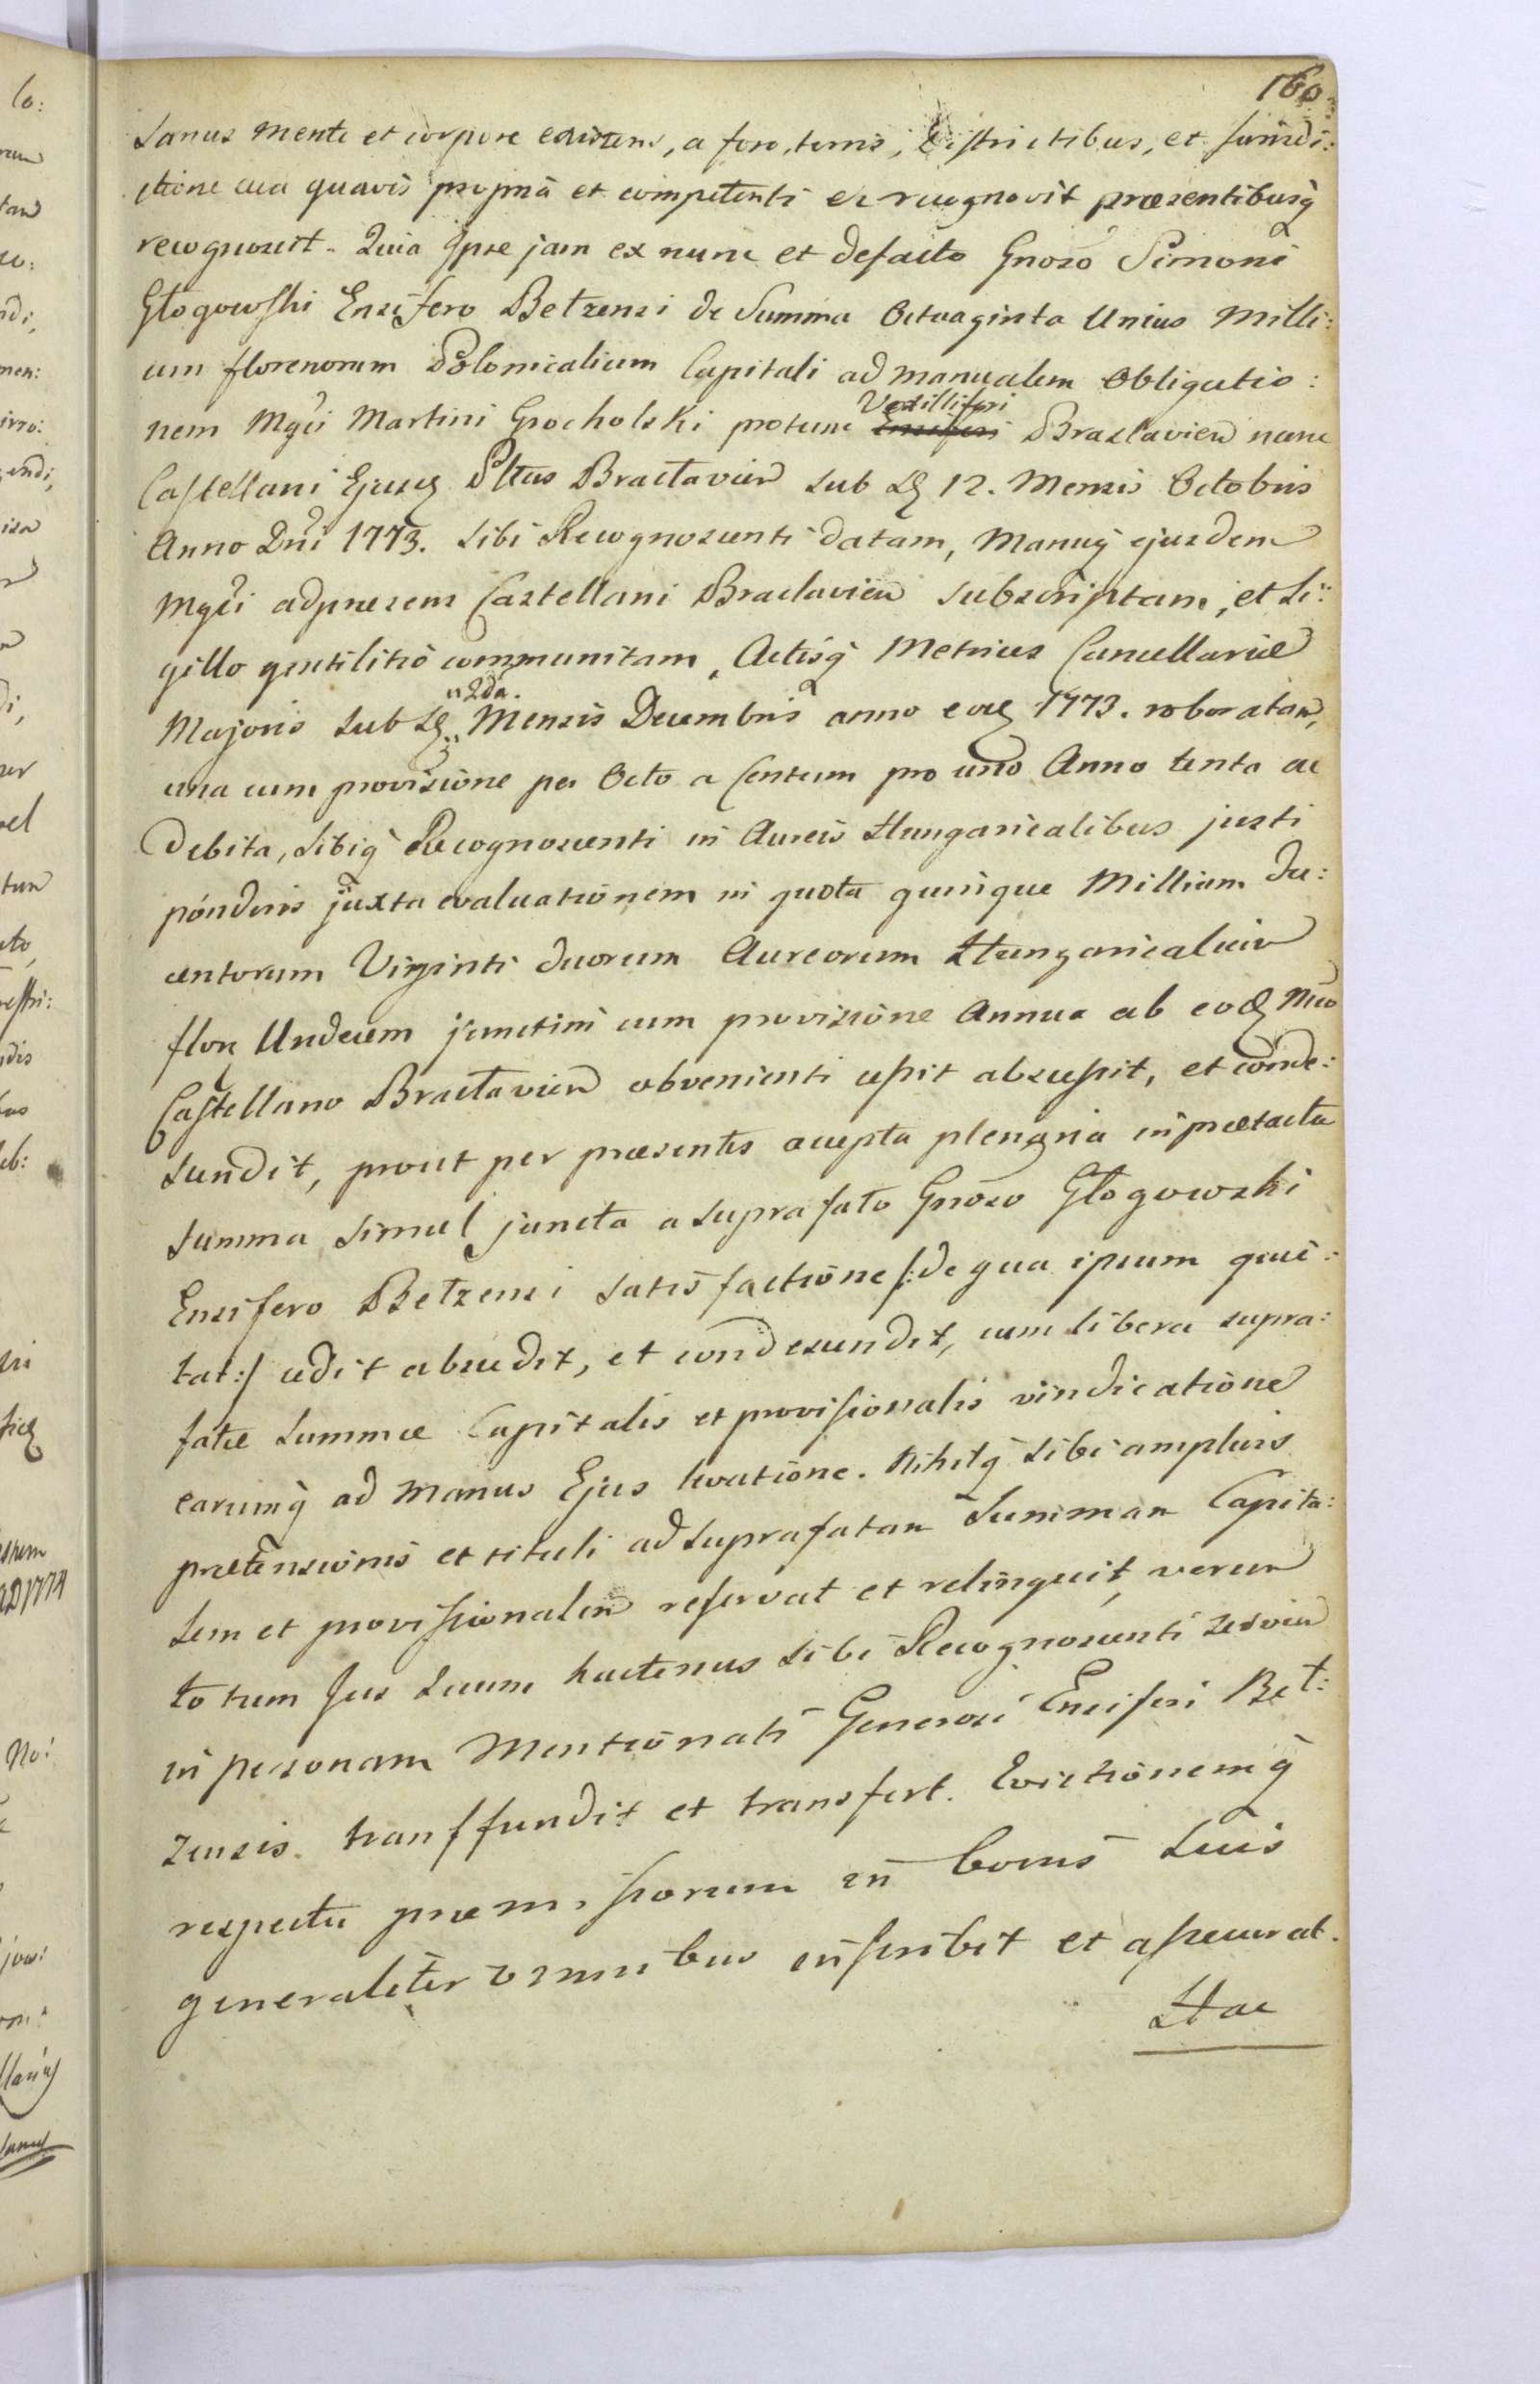 160.
Sanus mente et corpore existens, a foro, terris, districtibus, et Jurisdi:
ctione sua quavis propria et competenti recognovit præsentibusq
recognoscit. Quia Ipse jam ex nunc et defacto Gnoso Simoni
Głogowski Ensifero Bełzensi de Summa Octuaginta Unius Milli:
um florenorum Polonicalium Capitali ad manualem Obligatio:
nem Mgci Martini Grocholski protunc Vexilliferi Braclavien nunc
Castellani Ejusq Pltus Bracłavien sub Dq 12. Mensis Octobris
Anno Dni 1773. sibi Recognoscenti datam, Manuq ejusdem
Mgci adpræsens Castellani Braclavien subscriptam, et Si:
gillo gentilitio communitam, Actisq Metrices Cancellariæ
Majoris sub Dq "2da. Mensis Decembris anno eoq 1773. roboratam,
una cum provisione per Octo a Centum pro uno Anno tenta ac
Debita, sibiq Recognoscenti in Aureis Hungaricalibus justi
ponderis juxta evaluationem in quota quinque Millium Du:
centorum Viginti duorum Aureorum Hungaricalium
flor Undecem junctim cum provisione Annua ab eodq Mco
Castellano Bracłavien obvenienti cessit abscessit, et conde:
scendit, prout per præsentes accepta plenaria in prætacta
summa simul juncta a suprafato Gnoso Głogowski
Ensifero Bełzensi satisfactione /:de qua ipsum quie:
tat:/ cedit abscedit, et condescendit, cum libera supra:
fatæ Summæ Capitalis et provisionalis vindicatione
earumq ad manus Ejus levatione. Nihilq sibi amplius
prætensionis et tituli ad suprafatam Summam Capita:
lem et provisionalem reservat et relinquit, verum
totum Jus suum hactenus sibi Recognoscenti servien
in personam Mentionati Generosi Ensiferi Beł:
zensis transfundit et transfert. Evictionemq
respectu præmissorum in bonis suis
generaliter omnibus inscribit et assecurat.
Hac